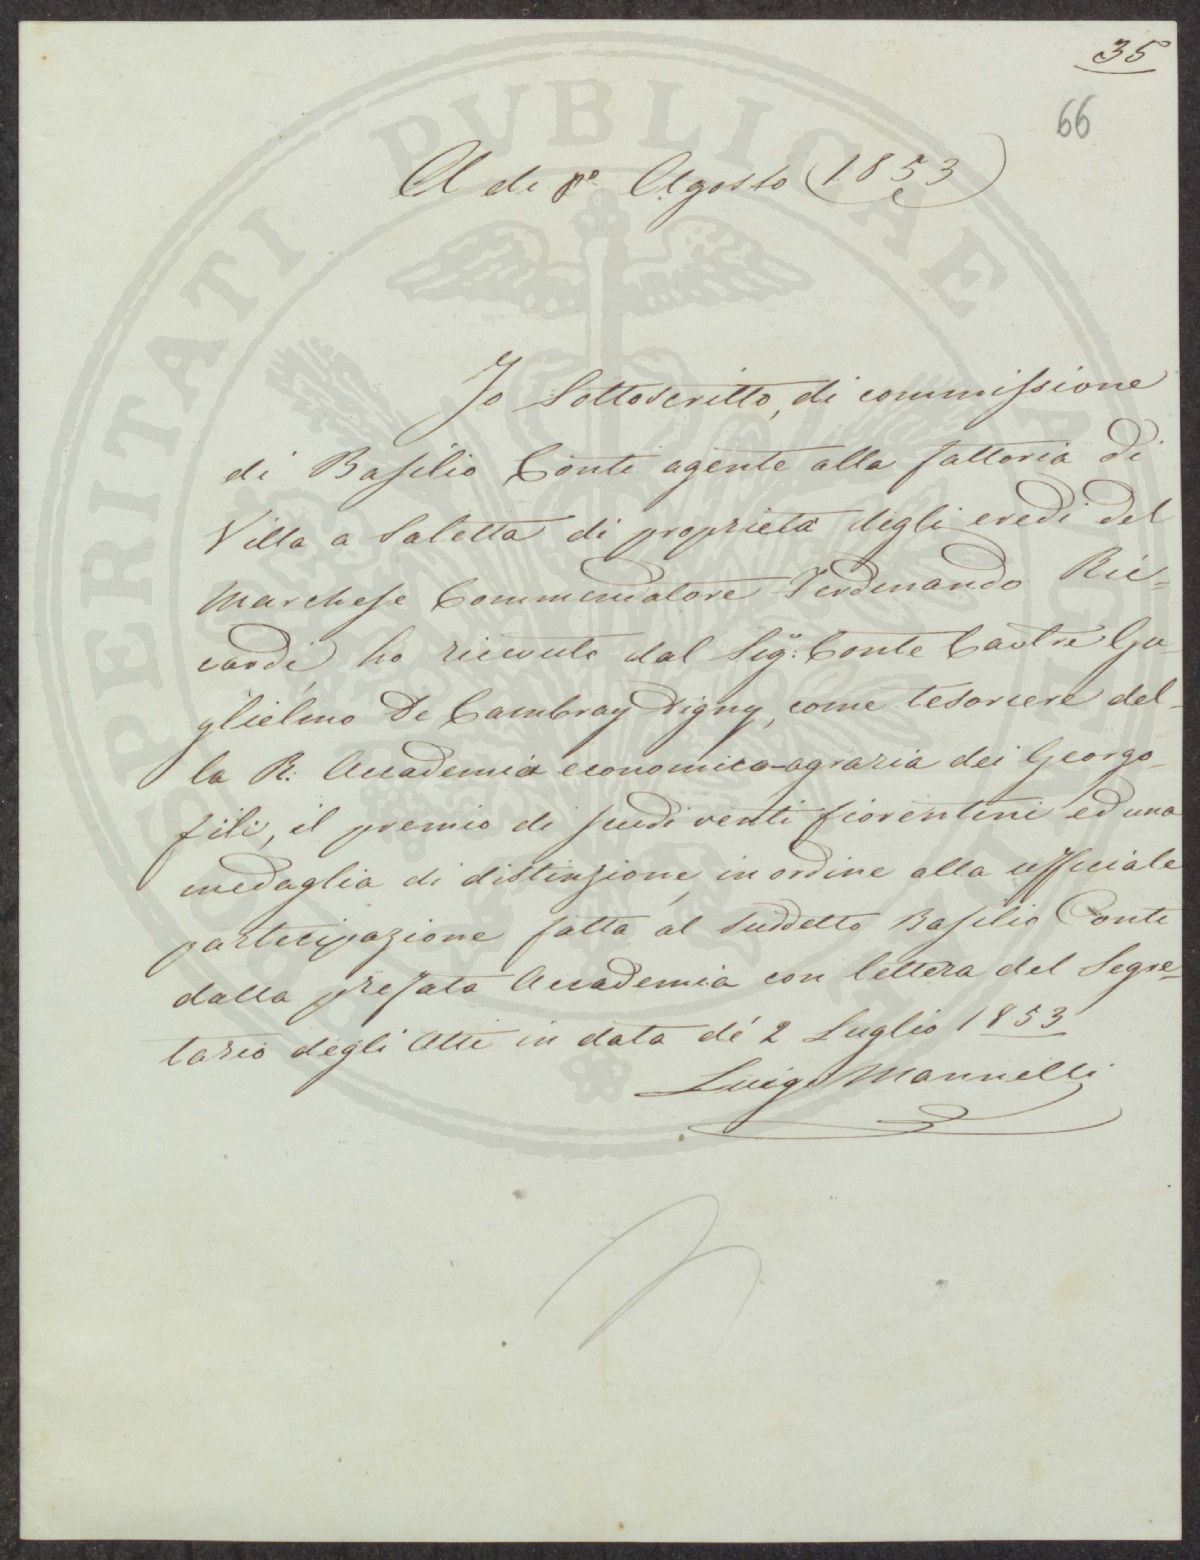 35
66
A dì p.º Agosto 1853
Io Sottoscritto, di commissione
di Basilio Conti agente alla fattoria di
Villa a Saletta di proprietà degli eredi del
Marchese Commendatore Ferdinando Ric-
cardi, ho ricevuto dal Sig: Conte Cav: Gu-
glielmo De Cambray Digny, come tesoriere del-
la R: Accademia economico-agraria dei Georgo-
fili, il premio di scudi venti fiorentini ed una
medaglia di distinzione, in ordine alla ufficiale
partecipazione fatta al suddetto Basilio Conti
dalla prefata Accademia con lettera del Segre-
tario degli Atti in data dì 2 Luglio 1853
Luigi Mannelli
PROSPERITATI PUBLICAE AUGENDAE